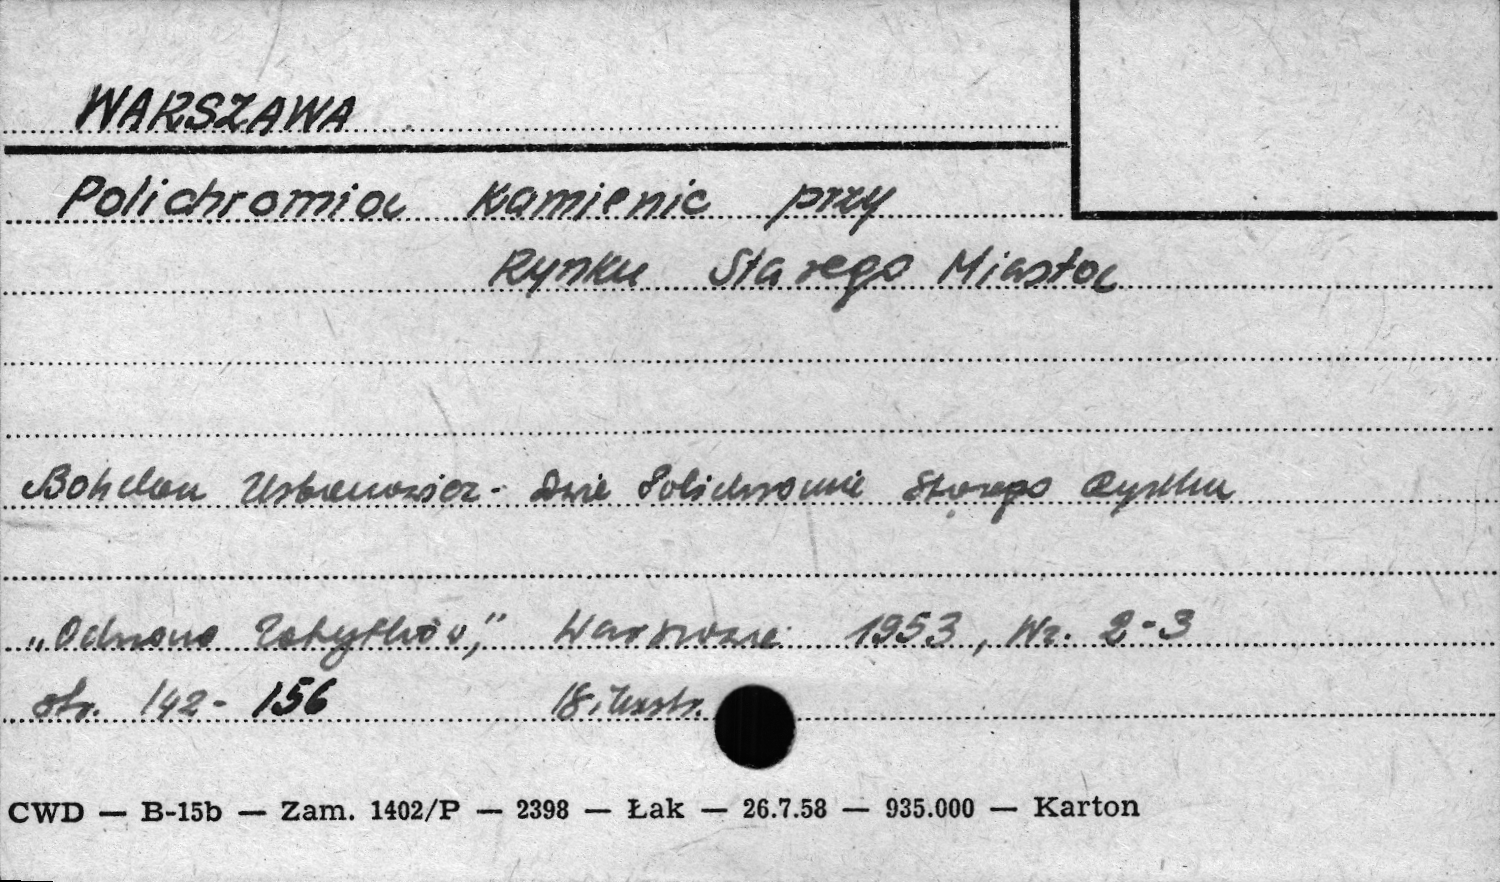 WARSZAWA
Polichromia kamienic przy
Rynku Starego Miasta
Bohdan Urbanowicz - Dwie Polichromie Starego Rynku
„Ochrona Zabytków," Warszawa 1953, Nr. 2-3
str. 142-156 18 ilustr.
CWD — B-15b — Zam. 1402/P — 2398 — Łak — 26.7.58 — 935.000 — Karton